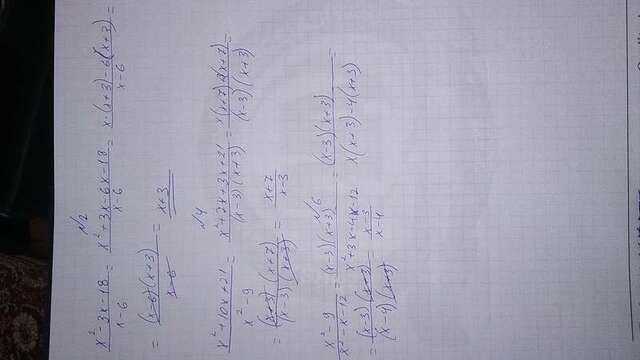 №2
x²-3x-18/x-6 = x²+3x-6x-18/x-6 = x·(x+3)-6(x+3)/x-6 =
= (x-6)(x+3)/x-6 = x+3
№4
x²+10x+21/x²-9 = x²+7x+3x+21/(x-3)(x+3) = x(x+7)+3(x+7)/(x-3)(x+3) =
= (x+3)(x+7)/(x-3)(x+3) = x+7/x-3
№6
x²-9/x²-x-12 = (x-3)(x+3)/x²+3x-4x-12 = (x-3)(x+3)/x(x+3)-4(x+3) =
= (x-3)(x+3)/(x-4)(x+3) = x-3/x-4